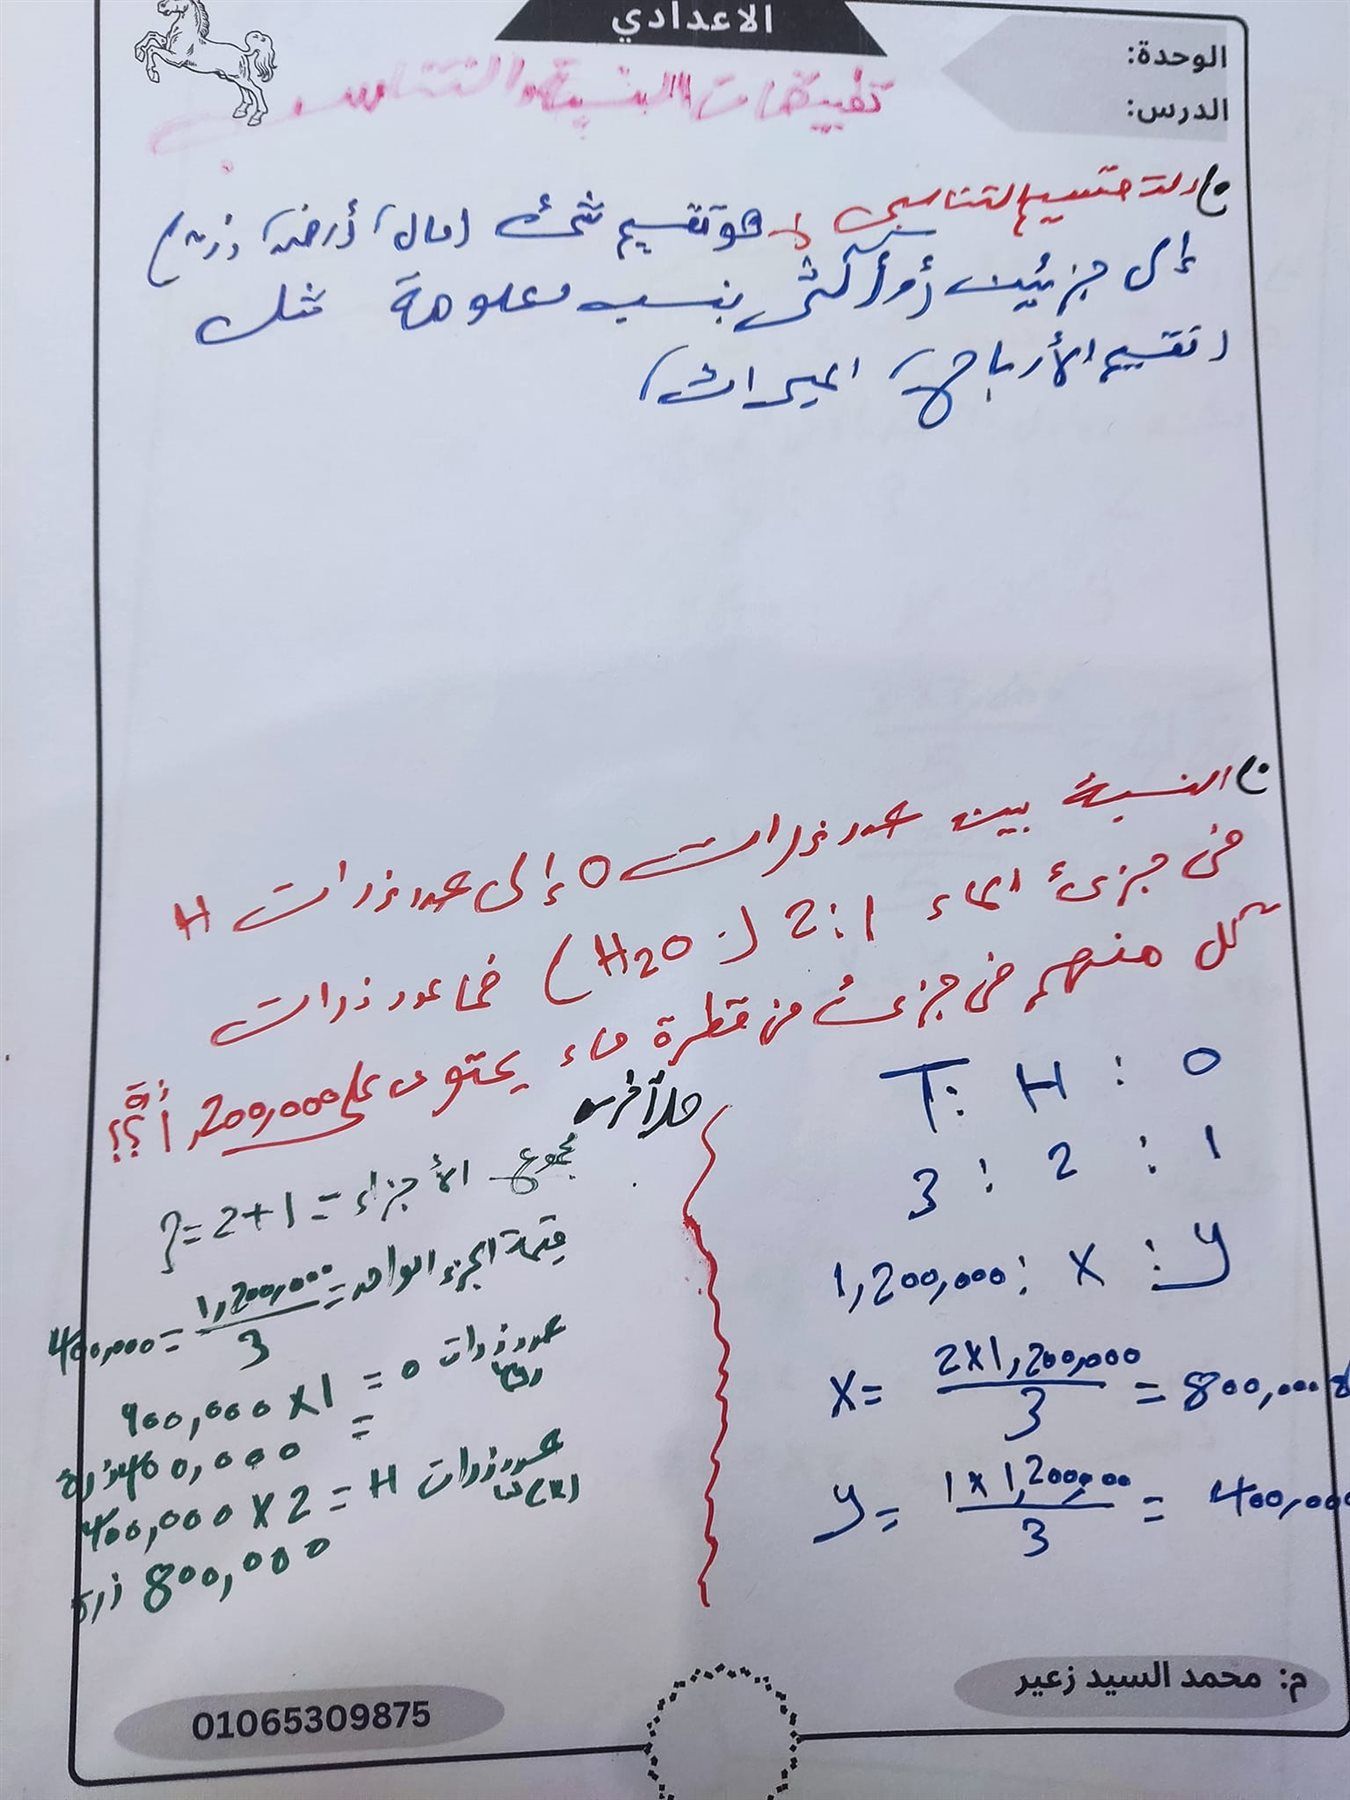 الاعدادي
الوحدة:
الدرس:
تطبيقات النسبة والتناسب
التقسيم التناسبي هو تقسيم شئ (مال، أرض، زرع)
إلى جزئين أو أكثر بنسب معلومة مثل
(تقسيم الأرباح، الميراث)
النسبة بين عدد ذرات O إلى عدد ذرات H
في جزئ الماء 1:2 (H2O) فما عدد ذرات
كل منهم في جزئ من قطرة ماء يحتوى على 1,200,000 ذرة؟؟
T : H : O
3 : 2 : 1
1,200,000 : X : y
X = 2×1,200,000 / 3 = 800,000
y = 1×1,200,000 / 3 = 400,000
حل آخر
مجموع الأجزاء = 1+2 = 3
قيمة الجزء الواحد = 1,200,000 / 3 = 400,000
عدد ذرات O = 1×400,000
= 400,000 ذرة
عدد ذرات H = 2×400,000
800,000 ذرة
م: محمد السيد زعير
01065309875